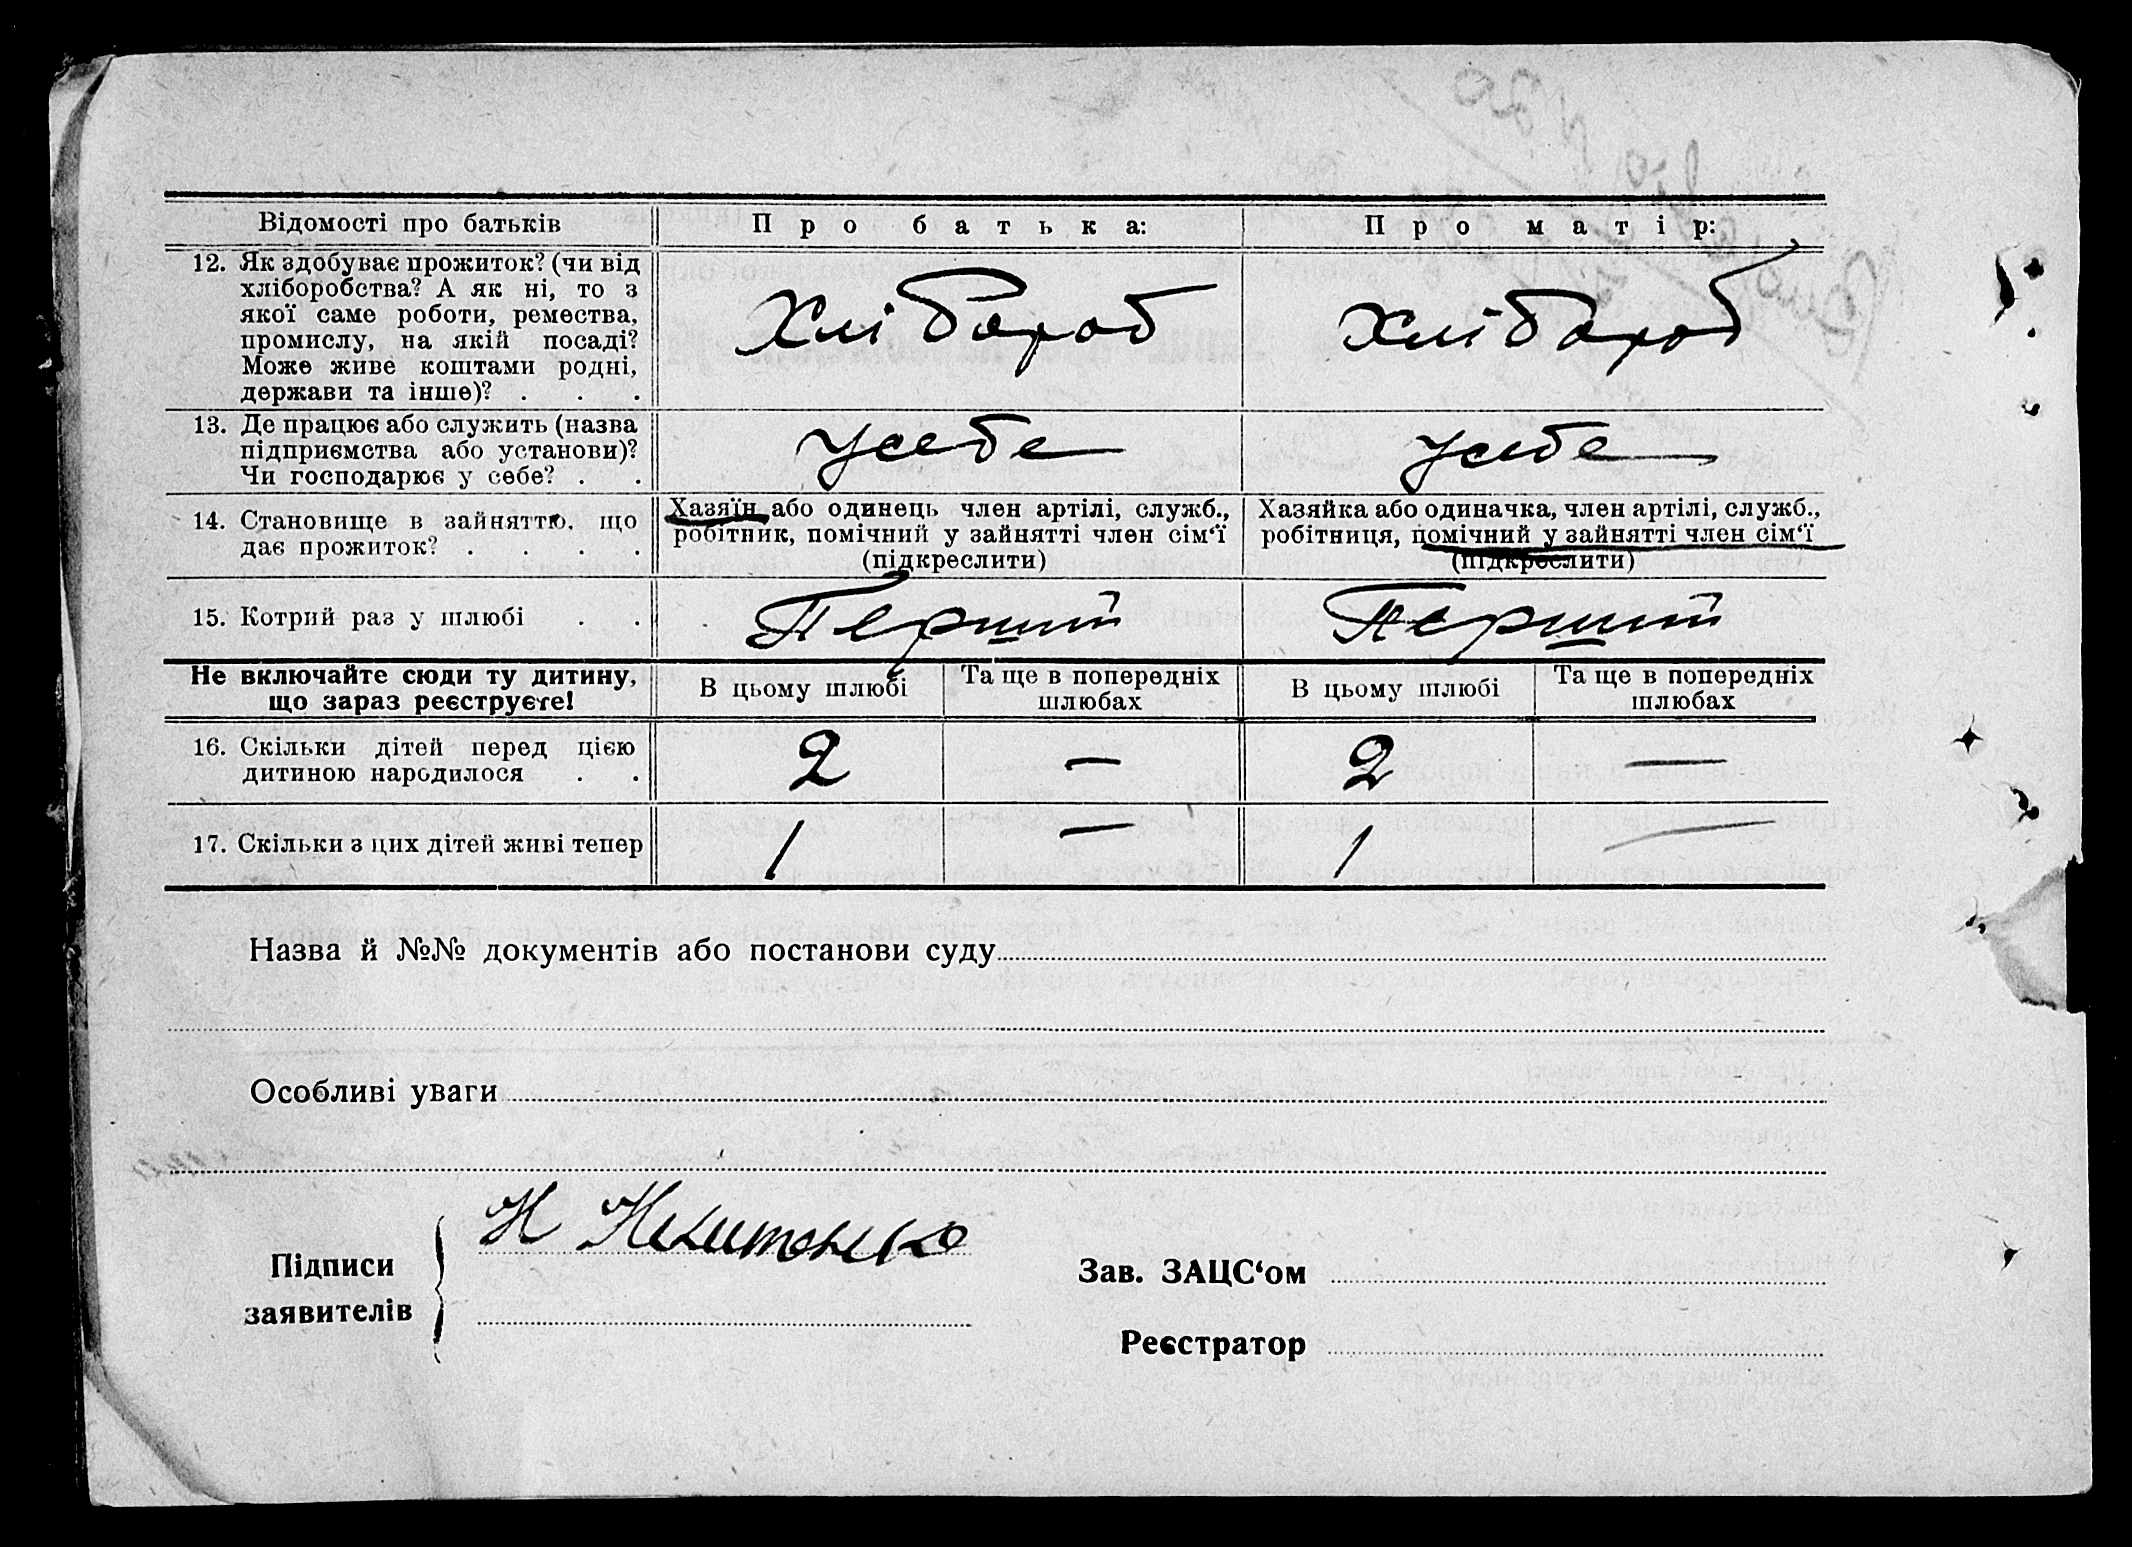 Відомості про батьків Про батька: Про матір:
12. Як здобуває прожиток? (чи від
хліборобства? А як ні, то з
якої саме роботи, ремества,
промислу, на якій посаді?
Може живе коштами родні,
держави та інше)? . . .
Хлібороб Хлібороб
13. Де працює або служить (назва
підприємства або установи)?
Чи господарює у себе? . .
усебе усебе
14. Становище в зайняттю, що
дає прожиток? . . . .
Хазяїн або одинець член артілі, служб.,
робітник, помічний у зайнятті член сім‘ї
(підкреслити)
Хазяйка або одиначка, член артілі, служб.,
робітниця, помічний у зайнятті член сім‘ї
(підкреслити)
15. Котрий раз у шлюбі . . Перший Перший
Не включайте сюди ту дитину,
що зараз реєструєте!
В цьому шлюбі
Та ще в попередніх
шлюбах
В цьому шлюбі
Та ще в попередніх
шлюбах
16. Скільки дітей перед цією
дитиною народилося . .
2 — 2 —
17. Скільки з цих дітей живі тепер 1 — 1 —
Назва й №№ документів або постанови суду
Особливі уваги
Підписи
заявителів
Н Никитенко
Зав. ЗАЦС‘ом
Реєстратор